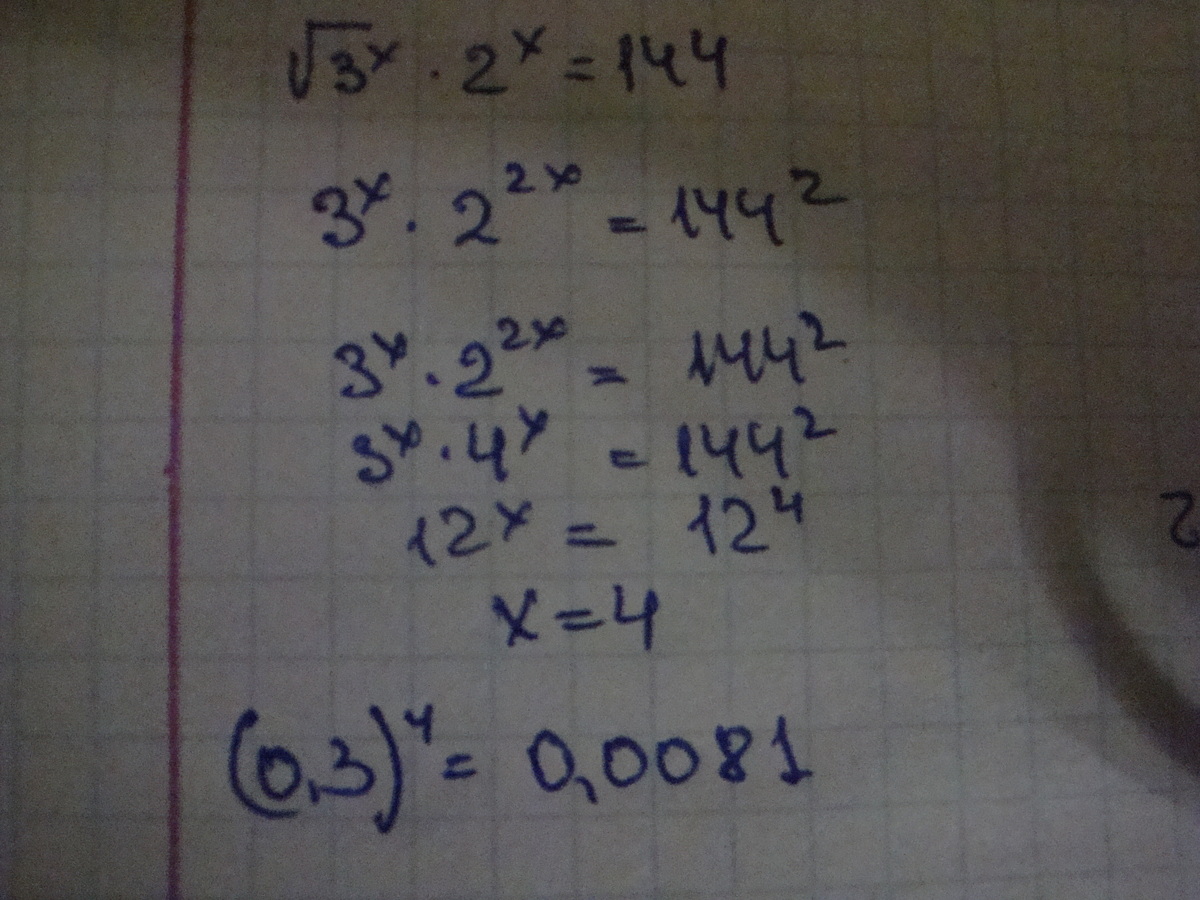 √3ˣ · 2ˣ = 144
3ˣ · 2²ˣ = 144²
3ˣ · 2²ˣ = 144²
3ˣ · 4ˣ = 144²
12ˣ = 12⁴
x = 4
(0,3)⁴ = 0,0081